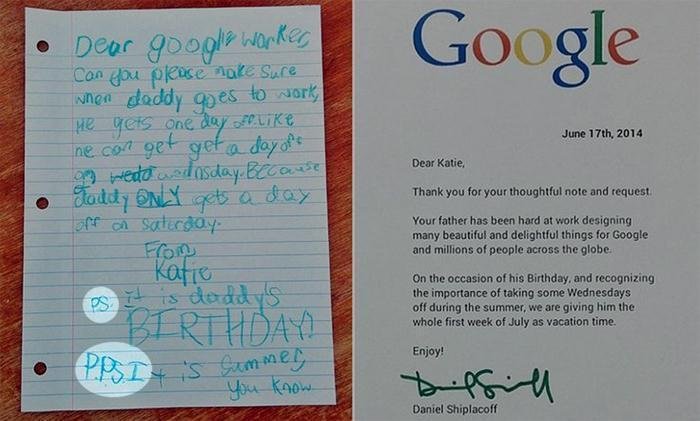 Dear google worker,
Can you please make sure
when daddy goes to work,
He gets one day off. Like
he can get get a day off
on wedsnesday. Because
daddy ONLY gets a day
off on saturday.
From
Katie
P.S. It is daddy's
BIRTHDAY!
P.P.S. It is Summer,
you know
Google
June 17th, 2014
Dear Katie,
Thank you for your thoughtful note and request.
Your father has been hard at work designing
many beautiful and delightful things for Google
and millions of people across the globe.
On the occasion of his Birthday, and recognizing
the importance of taking some Wednesdays
off during the summer, we are giving him the
whole first week of July as vacation time.
Enjoy!
Daniel Shiplacoff